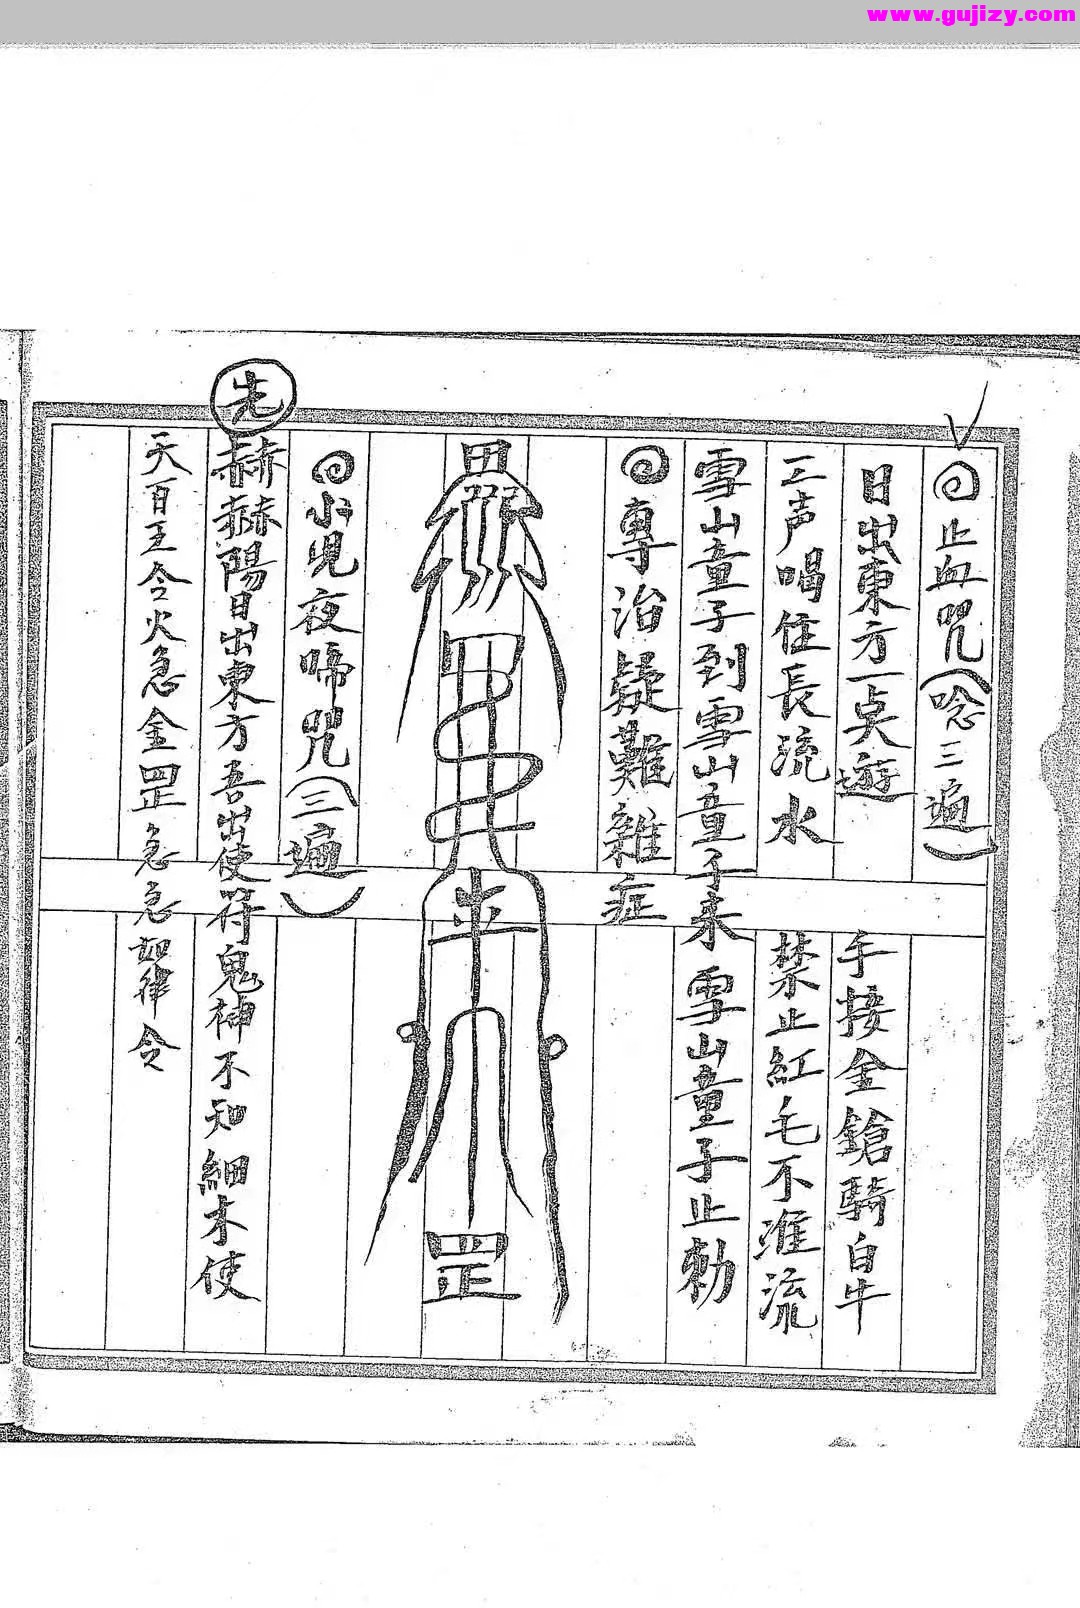 www.gujizy.com
止血咒（唸三遍）
日出東方一点遊 手接金鎗騎白牛
三声喝住長流水 禁止紅毛不准流
雪山童子到雪山童子来 雪山童子止勅
專治疑難雜症
罡
小児夜啼咒（三遍）
先
赫赫陽日出東方吾出使符鬼神不知細木使
天百王令火急金罡急急如律令